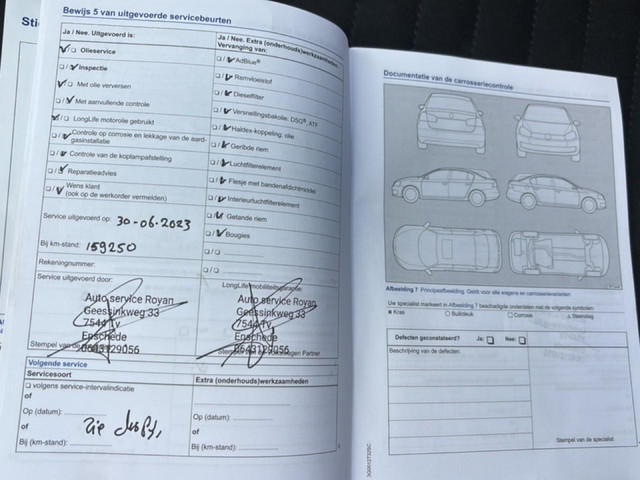 Sti
Bewijs 5 van uitgevoerde servicebeurten
Ja / Nee. Uitgevoerd is:
Olieservice
Inspectie
Met olie verversen
Met aanvullende controle
LongLife motorolie gebruikt
Controle op corrosie en lekkage van de aard-
gasinstallatie
Controle van de koplampafstelling
Reparatieadvies
Wens klant
(ook op de werkorder vermelden)
Service uitgevoerd op: 30-06-2023
Bij km-stand: 159250
Rekeningnummer:
Service uitgevoerd door:
Auto service Royan
Geessinkweg 33
7544 Tv
Enschede
0643129056
Stempel van de
Ja / Nee. Extra (onderhouds)werkzaamheden
Vervanging van:
AdBlue®
Remvloeistof
Dieselfilter
Versnellingsbakolie: DSG®, ATF
Haldex-koppeling: olie
Geribde riem
Luchtfilterelement
Flesje met bandenafdichtmiddel
Interieurluchtfilterelement
Getande riem
Bougies
LongLife mobiliteitsgarantie
Auto service Royan
Geessinkweg 33
7544 Tv
Enschede
0643129056
Partner
Volgende service
Servicesoort
volgens service-intervalindicatie
of
Op (datum):
of
Bij (km-stand):
zie
Extra (onderhouds)werkzaamheden
Op (datum):
of
Bij (km-stand):
Documentatie van de carrosseriecontrole
Afbeelding 7 Principeafbeelding. Geldt voor alle wagens en carrosserievarianten
Uw specialist markeert in Afbeelding 7 beschadigde onderdelen met de volgende symbolen:
Kras Buil/deuk Corrosie Steenslag
Defecten geconstateerd? Ja: Nee:
Beschrijving van de defecten:
Stempel van de specialist